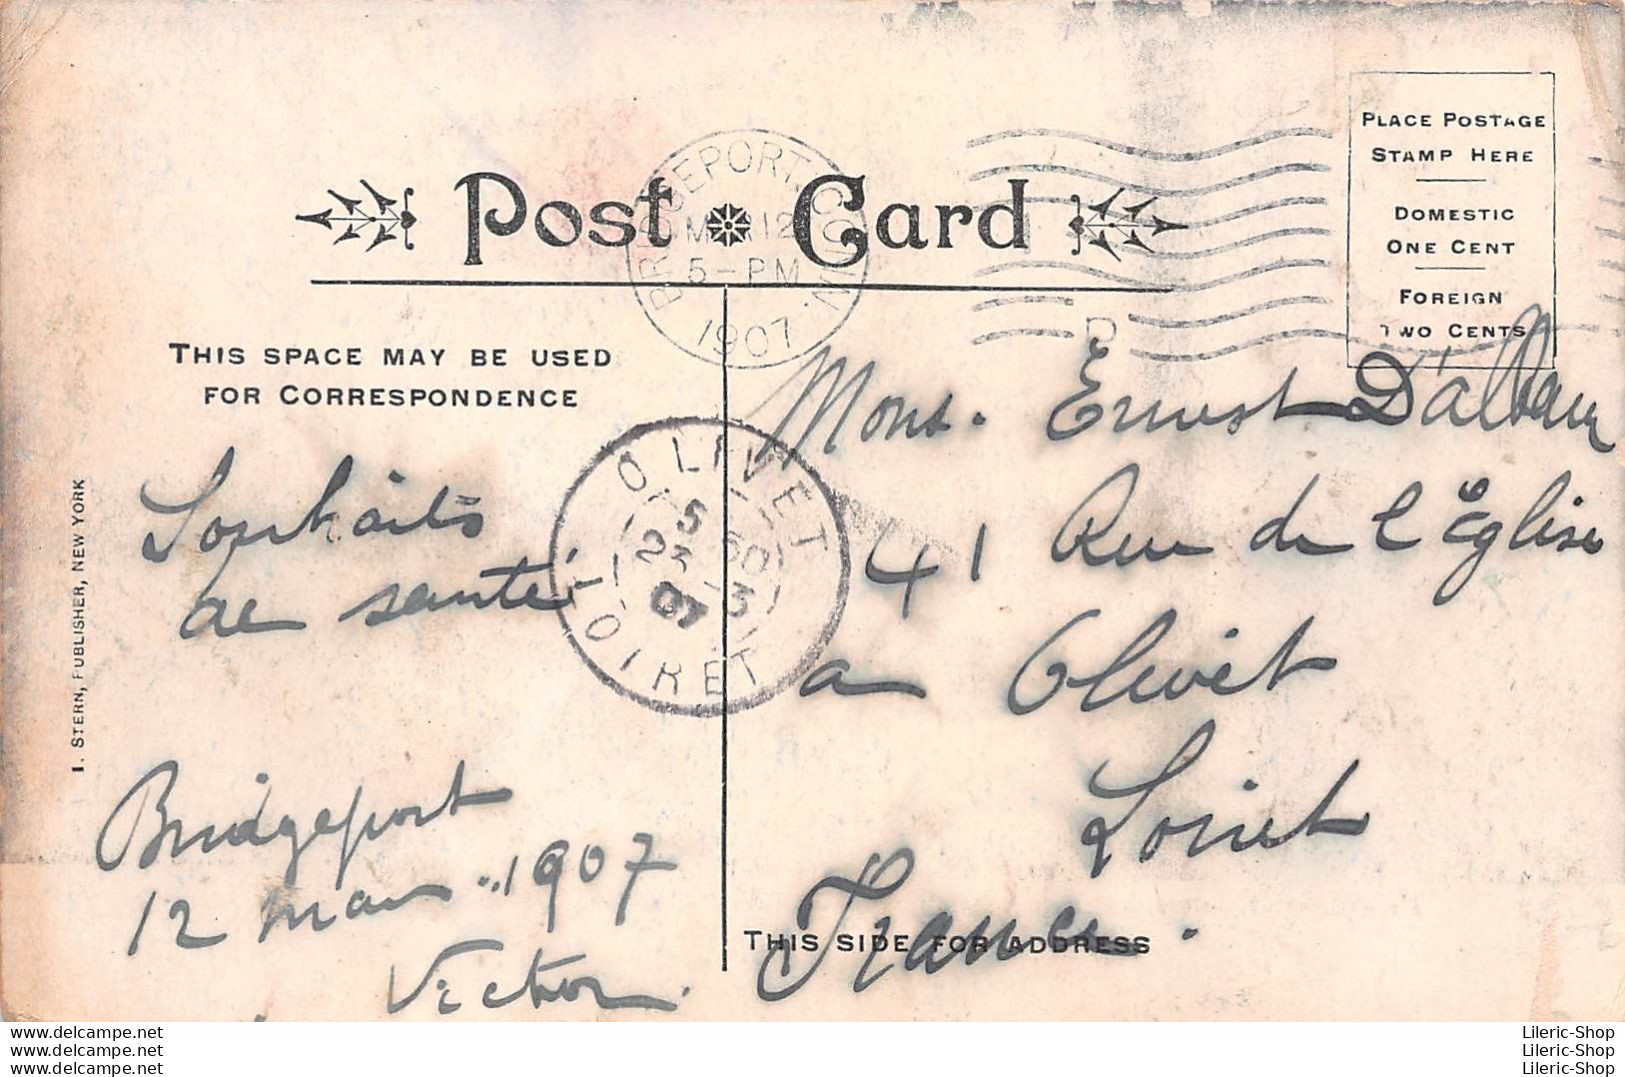 Post Card
BRIDGEPORT, CONN.
MAR 12
5-PM
1907
PLACE POSTAGE
STAMP HERE
DOMESTIC
ONE CENT
FOREIGN
TWO CENTS
THIS SPACE MAY BE USED
FOR CORRESPONDENCE
Souhaits
de santé
Bridgeport
12 mars 1907
Victor
I. STERN, PUBLISHER, NEW YORK
OLIVET
23
07
LOIRET
Mons. Ernest
41 Rue de l'Église
a Olivet
Loiret
France.
THIS SIDE FOR ADDRESS
www.delcampe.net
www.delcampe.net
www.delcampe.net
Lileric-Shop
Lileric-Shop
Lileric-Shop